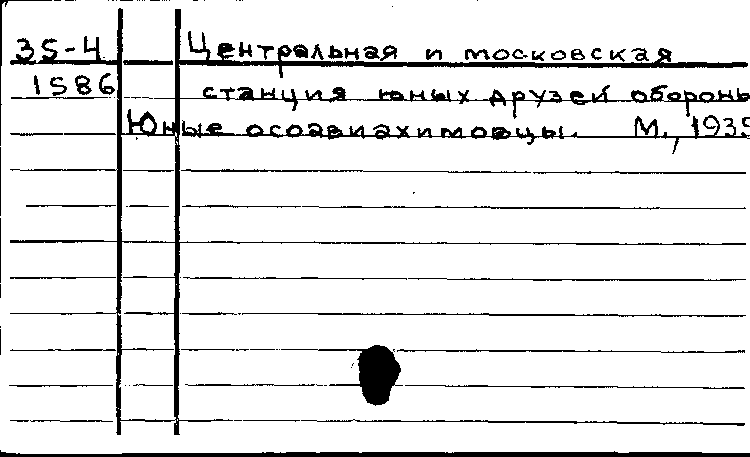 35-4 Центральная и московская
1586 станция юных друзей обороны
Юные осоавиахимовцы. М., 1935